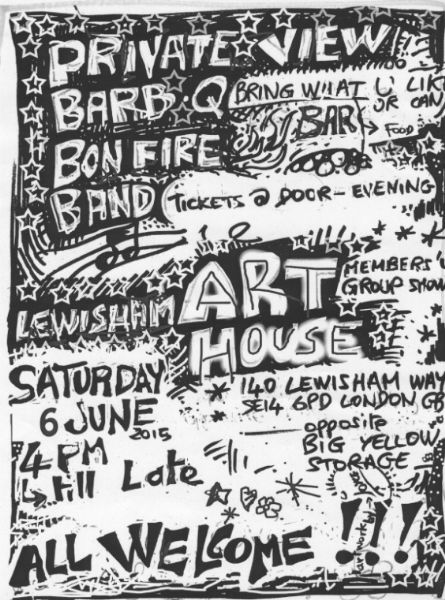 PRIVATE VIEW!
BARB.Q BRING WHAT U LIKE
OR CAN
BAR → FOOD
BONFIRE
BAND TICKETS @ DOOR - EVENING
LEWISHAM ART HOUSE
MEMBERS'
GROUP SHOW
SATURDAY
6 JUNE
2015
4PM
↳ till Late
140 LEWISHAM WAY
SE14 6PD LONDON GB
opposite
BIG YELLOW
STORAGE
ALL WELCOME !!!